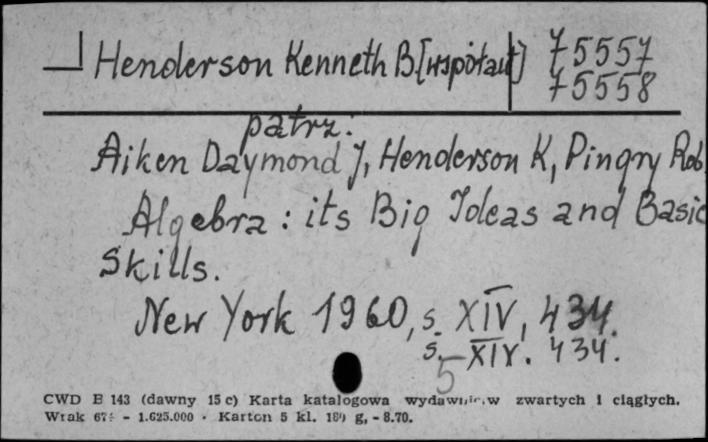 Henderson Kenneth B. [współaut] 75557
75558
patrz:
Aiken Daymond J, Henderson K, Pingry Rob
Algebra: its Big Ideas and Basic
Skills.
New York 1960, s. XIV, 434.
s. XIV. 434.
5
CWD E 143 (dawny 15 c) Karta katalogowa zwartych i ciągłych.
Wrak - 1.625.000 · Karton 5 kl. g, - 8.70.